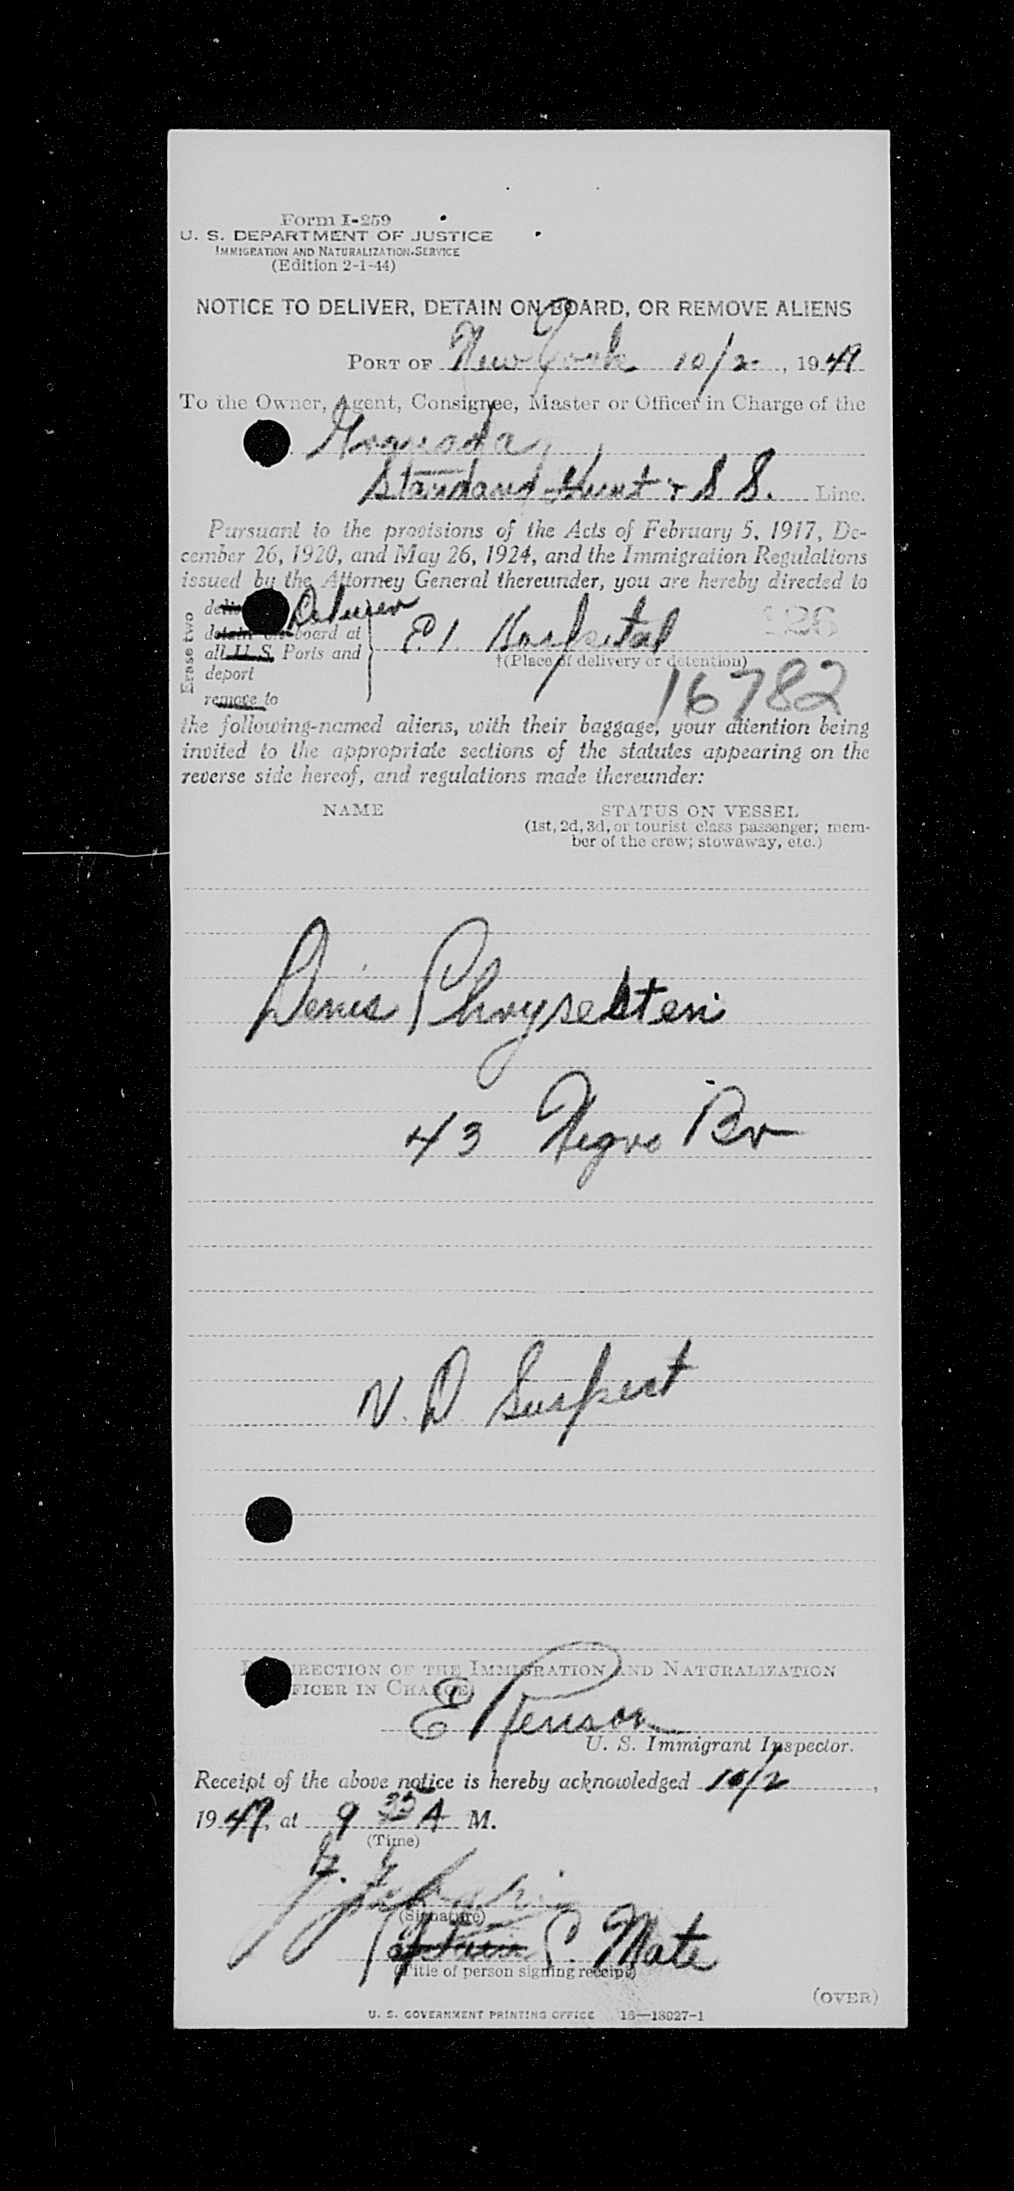 Form I-259
U. S. DEPARTMENT OF JUSTICE
IMMIGRATION AND NATURALIZATION SERVICE
(Edition 2-1-44)
NOTICE TO DELIVER, DETAIN ON BOARD, OR REMOVE ALIENS
PORT OF New York 10/2, 1949
To the Owner, Agent, Consignee, Master or Officer in Charge of the
Standard Line.
Pursuant to the provisions of the Acts of February 5, 1917, De-
cember 26, 1920, and May 26, 1924, and the Immigration Regulations
issued by the Attorney General thereunder, you are hereby directed to
Erase two
detain on board at
all U. S. Ports and
deport
remove to
E.I. Hospital
†(Place of delivery or detention)
126
16782
the following-named aliens, with their baggage, your attention being
invited to the appropriate sections of the statutes appearing on the
reverse side hereof, and regulations made thereunder:
NAME STATUS ON VESSEL
(1st, 2d, 3d, or tourist class passenger; mem-
ber of the crew; stowaway, etc.)
Denis
43 Negro Br
V. D. Suspect
DIRECTION OF THE IMMIGRATION AND NATURALIZATION
OFFICER IN CHARGE:
U. S. Immigrant Inspector.
Receipt of the above notice is hereby acknowledged 10/2,
1949, at 9 35 A M.
(Time)
(Signature)
C. Mate
(Title of person signing receipt)
(OVER)
U. S. GOVERNMENT PRINTING OFFICE 16—18027-1